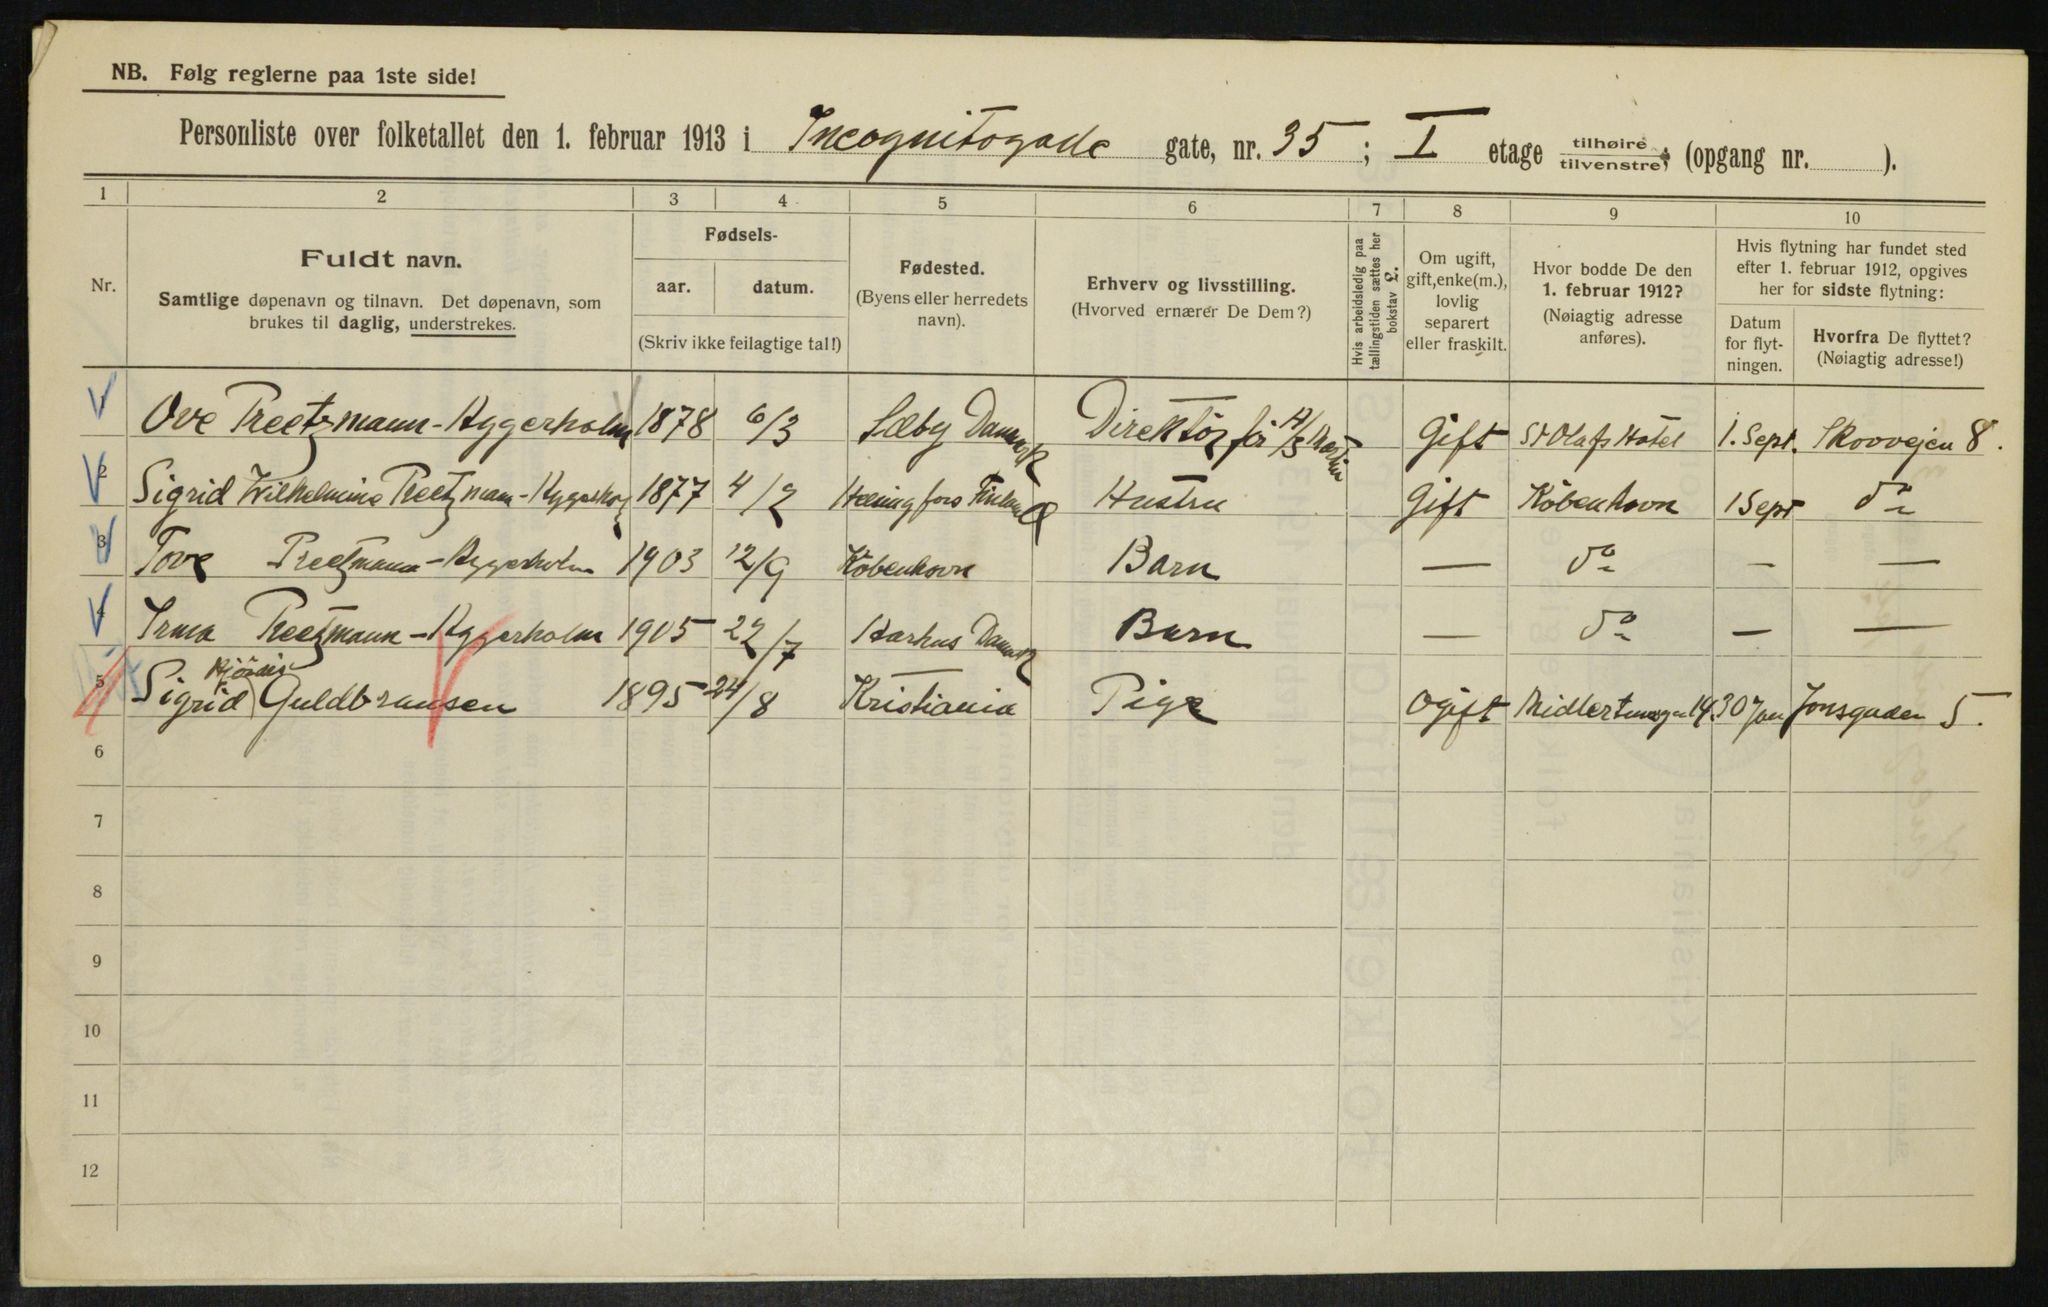 NB. Følg reglerne paa 1ste side!
Personliste over folketallet den 1. februar 1913 i Incognitogade gate, nr. 35; I etage tilhøire tilvenstre; (opgang nr. ).
1 2 3 4 5 6 7 8 9 10
Nr.
Fuldt navn.
Samtlige døpenavn og tilnavn. Det døpenavn, som
brukes til daglig, understrekes.
Fødsels-
aar. datum.
(Skriv ikke feilagtige tal!)
Fødested.
(Byens eller herredets
navn).
Erhverv og livsstilling.
(Hvorved ernærer De Dem?)
Hvis arbeidsledig paa
tællingstiden sættes her
bokstav L.
Om ugift,
gift, enke(m.),
lovlig
separert
eller fraskilt.
Hvor bodde De den
1. februar 1912?
(Nøiagtig adresse
anføres).
Hvis flytning har fundet sted
efter 1. februar 1912, opgives
her for sidste flytning:
Datum
for flyt-
ningen.
Hvorfra De flyttet?
(Nøiagtig adresse!)
1 Ove Preetzmann-Aggerholm 1878 6/3 Sæby Danmark Direktör for A/S Gift St Olafs Hotel 1. Sept. Skovvejen 8.
2 Sigrid Wilhelmine Preetzmann- 1877 4/2 Helsingfors Finland Hustru Gift København 1 Sept do
3 Tove Preetzmann-Aggerholm 1903 12/9 København Barn — do — —
4 Irma Preetzmann-Aggerholm 1905 22/7 Aarhus Danmark Barn — do — —
Hjördis
5 Sigrid Guldbransen 1895 24/8 Kristiania Pige Ogift 14. 30 Jan Jonsgaden 5.
6
7
8
9
10
11
12